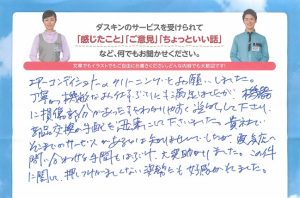 ダスキンのサービスを受けられて
「感じたこと」「ご意見」「ちょっといい話」
など、何でもお聞かせください。
文章でもイラストでもご自由にお書きください。どんな内容でも大歓迎です!
エアーコンディショナーのクリーニングをお願いしました。
丁寧で機敏なお仕事ぶりにも満足しましたが、機器
に損傷部分があった事をわかりやすく説明して下さい
部品交換の手配も出来ることで下さいました。貴社にい
そこまでのサービスがあるとは知りませんでしたので、販売店への
問い合わせる手間もはぶけ、大変助かりました。この件
に関して、押しつけがましくない姿勢にも好感がもてました。